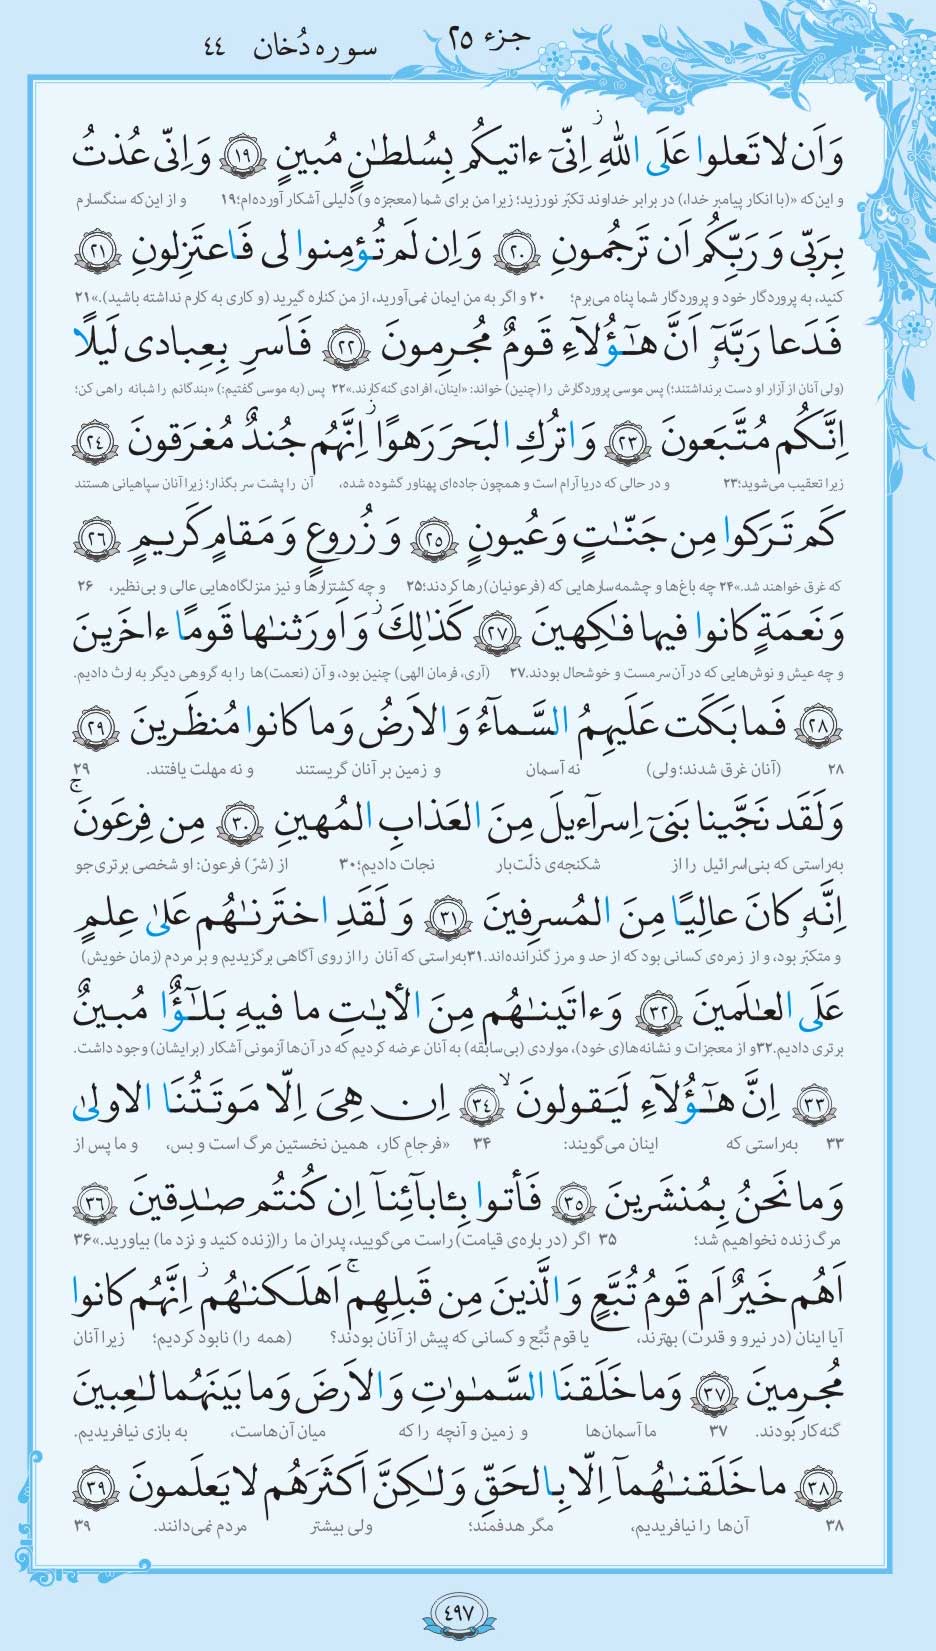 جزء ۲۵
سوره دُخان ۴۴
وَاَن لا تَعلوا عَلَى اللّٰهِ اِنّىٓ ءاتيكُم بِسُلطٰنٍ مُبينٍ ۱۹ وَ اِنّى عُذتُ
و این‌که «(با انکار پیامبر خدا،) در برابر خداوند تکبّر نورزید؛ زیرا من برای شما (معجزه و) دلیلی آشکار آورده‌ام؛۱۹ و از این‌که سنگسارم
بِرَبّى وَ رَبِّكُم اَن تَرجُمونِ ۲۰ وَ اِن لَم تُؤمِنوا لى فَاعتَزِلونِ ۲۱
کنید، به پروردگار خود و پروردگار شما پناه می‌برم؛ ۲۰ و اگر به من ایمان نمی‌آورید، از من کناره گیرید (و کاری به کارم نداشته باشید).»۲۱
فَدَعا رَبَّهٗٓ اَنَّ هٰٓؤُلآءِ قَومٌ مُجرِمونَ ۲۲ فَاَسرِ بِعِبادى لَيلًا
(ولی آنان از آزار او دست برنداشتند؛) پس موسی پروردگارش را (چنین) خواند: «اینان، افرادی گنه‌کارند.»۲۲ پس (به موسی گفتیم:) «بندگانم را شبانه راهی کن؛
اِنَّكُم مُتَّبَعونَ ۲۳ وَ اترُكِ البَحرَ رَهوًا اِنَّهُم جُندٌ مُغرَقونَ ۲۴
زیرا تعقیب می‌شوید؛۲۳ و در حالی که دریا آرام است و همچون جاده‌ای پهناور گشوده شده، آن را پشت سر بگذار؛ زیرا آنان سپاهیانی هستند
كَم تَرَكوا مِن جَنّٰتٍ وَ عُيونٍ ۲۵ وَ زُروعٍ وَ مَقامٍ كَريمٍ ۲۶
که غرق خواهند شد.»۲۴ چه باغ‌ها و چشمه‌سارهایی که (فرعونیان) رها کردند؛۲۵ و چه کشتزارها و نیز منزلگاه‌هایی عالی و بی‌نظیر، ۲۶
وَ نَعمَةٍ كانوا فيها فٰكِهينَ ۲۷ كَذٰلِكَ وَ اَورَثنٰها قَومًا ءاخَرينَ
و چه عیش و نوش‌هایی که در آن سرمست و خوشحال بودند.۲۷ (آری، فرمان الهی) چنین بود، و آن (نعمت)ها را به گروهی دیگر به ارث دادیم.
۲۸ فَما بَكَت عَلَيهِمُ السَّمآءُ وَ الاَرضُ وَ ما كانوا مُنظَرينَ ۲۹
۲۸ (آنان غرق شدند؛ ولی) نه آسمان و زمین بر آنان گریستند و نه مهلت یافتند. ۲۹
وَ لَقَد نَجَّينا بَنىٓ اِسرآءيلَ مِنَ العَذابِ المُهينِ ۳۰ مِن فِرعَونَ
به‌راستی که بنی‌اسرائیل را از شکنجه‌ی ذلّت‌بار نجات دادیم؛۳۰ از (شرّ) فرعون: او شخصی برتری‌جو
اِنَّهٗ كانَ عالِيًا مِنَ المُسرِفينَ ۳۱ وَ لَقَدِ اختَرنٰهُم عَلىٰ عِلمٍ
و متکبّر بود، و از زمره‌ی کسانی بود که از حد و مرز گذرانده‌اند.۳۱به‌راستی که آنان را از روی آگاهی برگزیدیم و بر مردم (زمان خویش)
عَلَى العٰلَمينَ ۳۲ وَ ءاتَينٰهُم مِنَ الأياٰتِ ما فيهِ بَلٰٓؤٌا مُبينٌ
برتری دادیم.۳۲و از معجزات و نشانه‌ها(ی خود)، مواردی (بی‌سابقه) به آنان عرضه کردیم که در آن‌ها آزمونی آشکار (برایشان) وجود داشت.
۳۳ اِنَّ هٰٓؤُلآءِ لَيَقولونَ ۳۴ اِن هِىَ اِلّا مَوتَتُنَا الاولىٰ
۳۳ به‌راستی که اینان می‌گویند: ۳۴ «فرجامِ کار، همین نخستین مرگ است و بس، و ما پس از
وَ ما نَحنُ بِمُنشَرينَ ۳۵ فَأتوا بِئابآئِنآ اِن كُنتُم صٰدِقينَ ۳۶
مرگ زنده نخواهیم شد؛ ۳۵ اگر (در باره‌ی قیامت) راست می‌گویید، پدران ما را(زنده کنید و نزد ما) بیاورید.»۳۶
اَهُم خَيرٌ اَم قَومُ تُبَّعٍ وَ الَّذينَ مِن قَبلِهِم اَهلَكنٰهُم اِنَّهُم كانوا
آیا اینان (در نیرو و قدرت) بهترند، یا قوم تُبَّع و کسانی که پیش از آنان بودند؟ (همه را) نابود کردیم؛ زیرا آنان
مُجرِمينَ ۳۷ وَ ما خَلَقنَا السَّمٰوٰتِ وَ الاَرضَ وَ ما بَينَهُما لٰعِبينَ
گنه‌کار بودند. ۳۷ ما آسمان‌ها و زمین و آنچه را که میان آن‌هاست، به بازی نیافریدیم.
۳۸ ما خَلَقنٰهُمآ اِلّا بِالحَقِّ وَ لٰكِنَّ اَكثَرَهُم لا يَعلَمونَ ۳۹
۳۸ آن‌ها را نیافریدیم، مگر هدفمند؛ ولی بیشتر مردم نمی‌دانند. ۳۹
۴۹۷